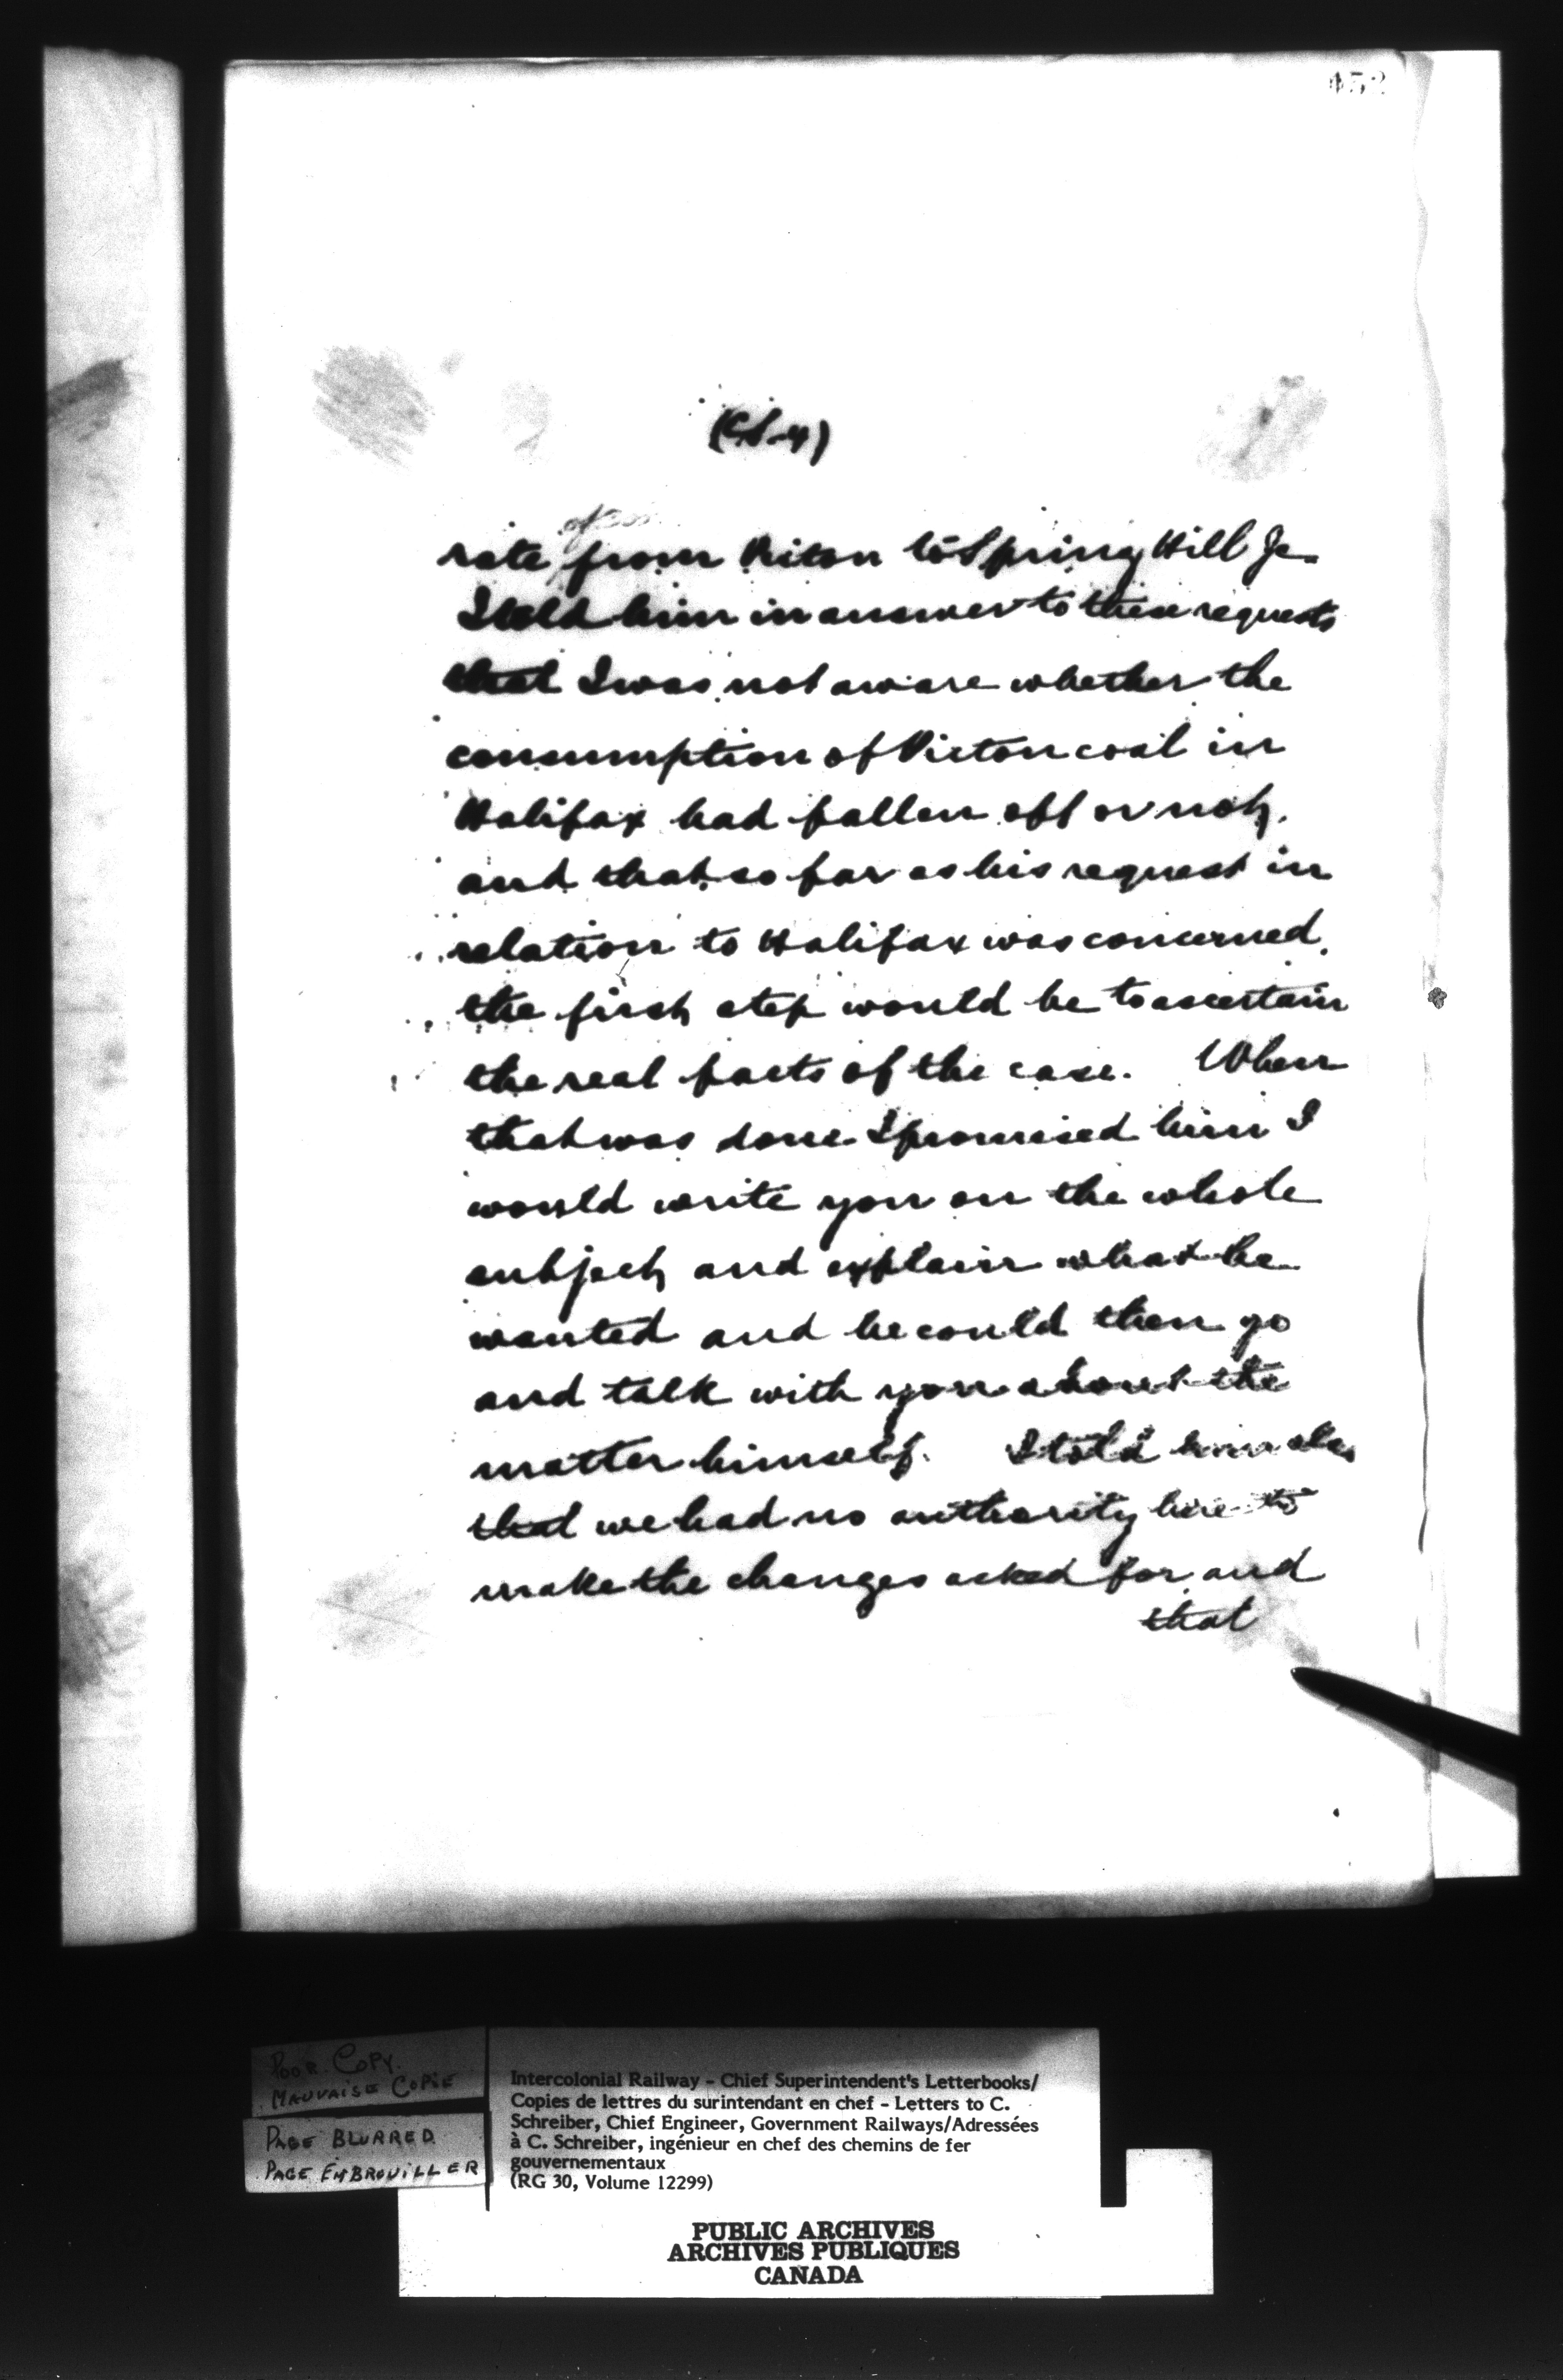 452
(CS-4)
rate from Picton to Spring Hill Jc.
I told him in answer to these requests
that I was not aware whether the
consumption of Picton coal in
Halifax had fallen off or not,
and that so far as his request in
relation to Halifax was concerned,
the first step would be to ascertain
the real facts of the case. When
that was done I promised him I
would write you on the whole
subject and explain what he
wanted and he could then go
and talk with you about the
matter himself. I told him also
that we had no authority here to
make the changes asked for and
that
POOR COPY.
MAUVAISE COPIE
PAGE BLURRED
PAGE EMBROUILLER
Intercolonial Railway - Chief Superintendent's Letterbooks/
Copies de lettres du surintendant en chef - Letters to C.
Schreiber, Chief Engineer, Government Railways/Adressées
à C. Schreiber, ingénieur en chef des chemins de fer
gouvernementaux
(RG 30, Volume 12299)
PUBLIC ARCHIVES
ARCHIVES PUBLIQUES
CANADA